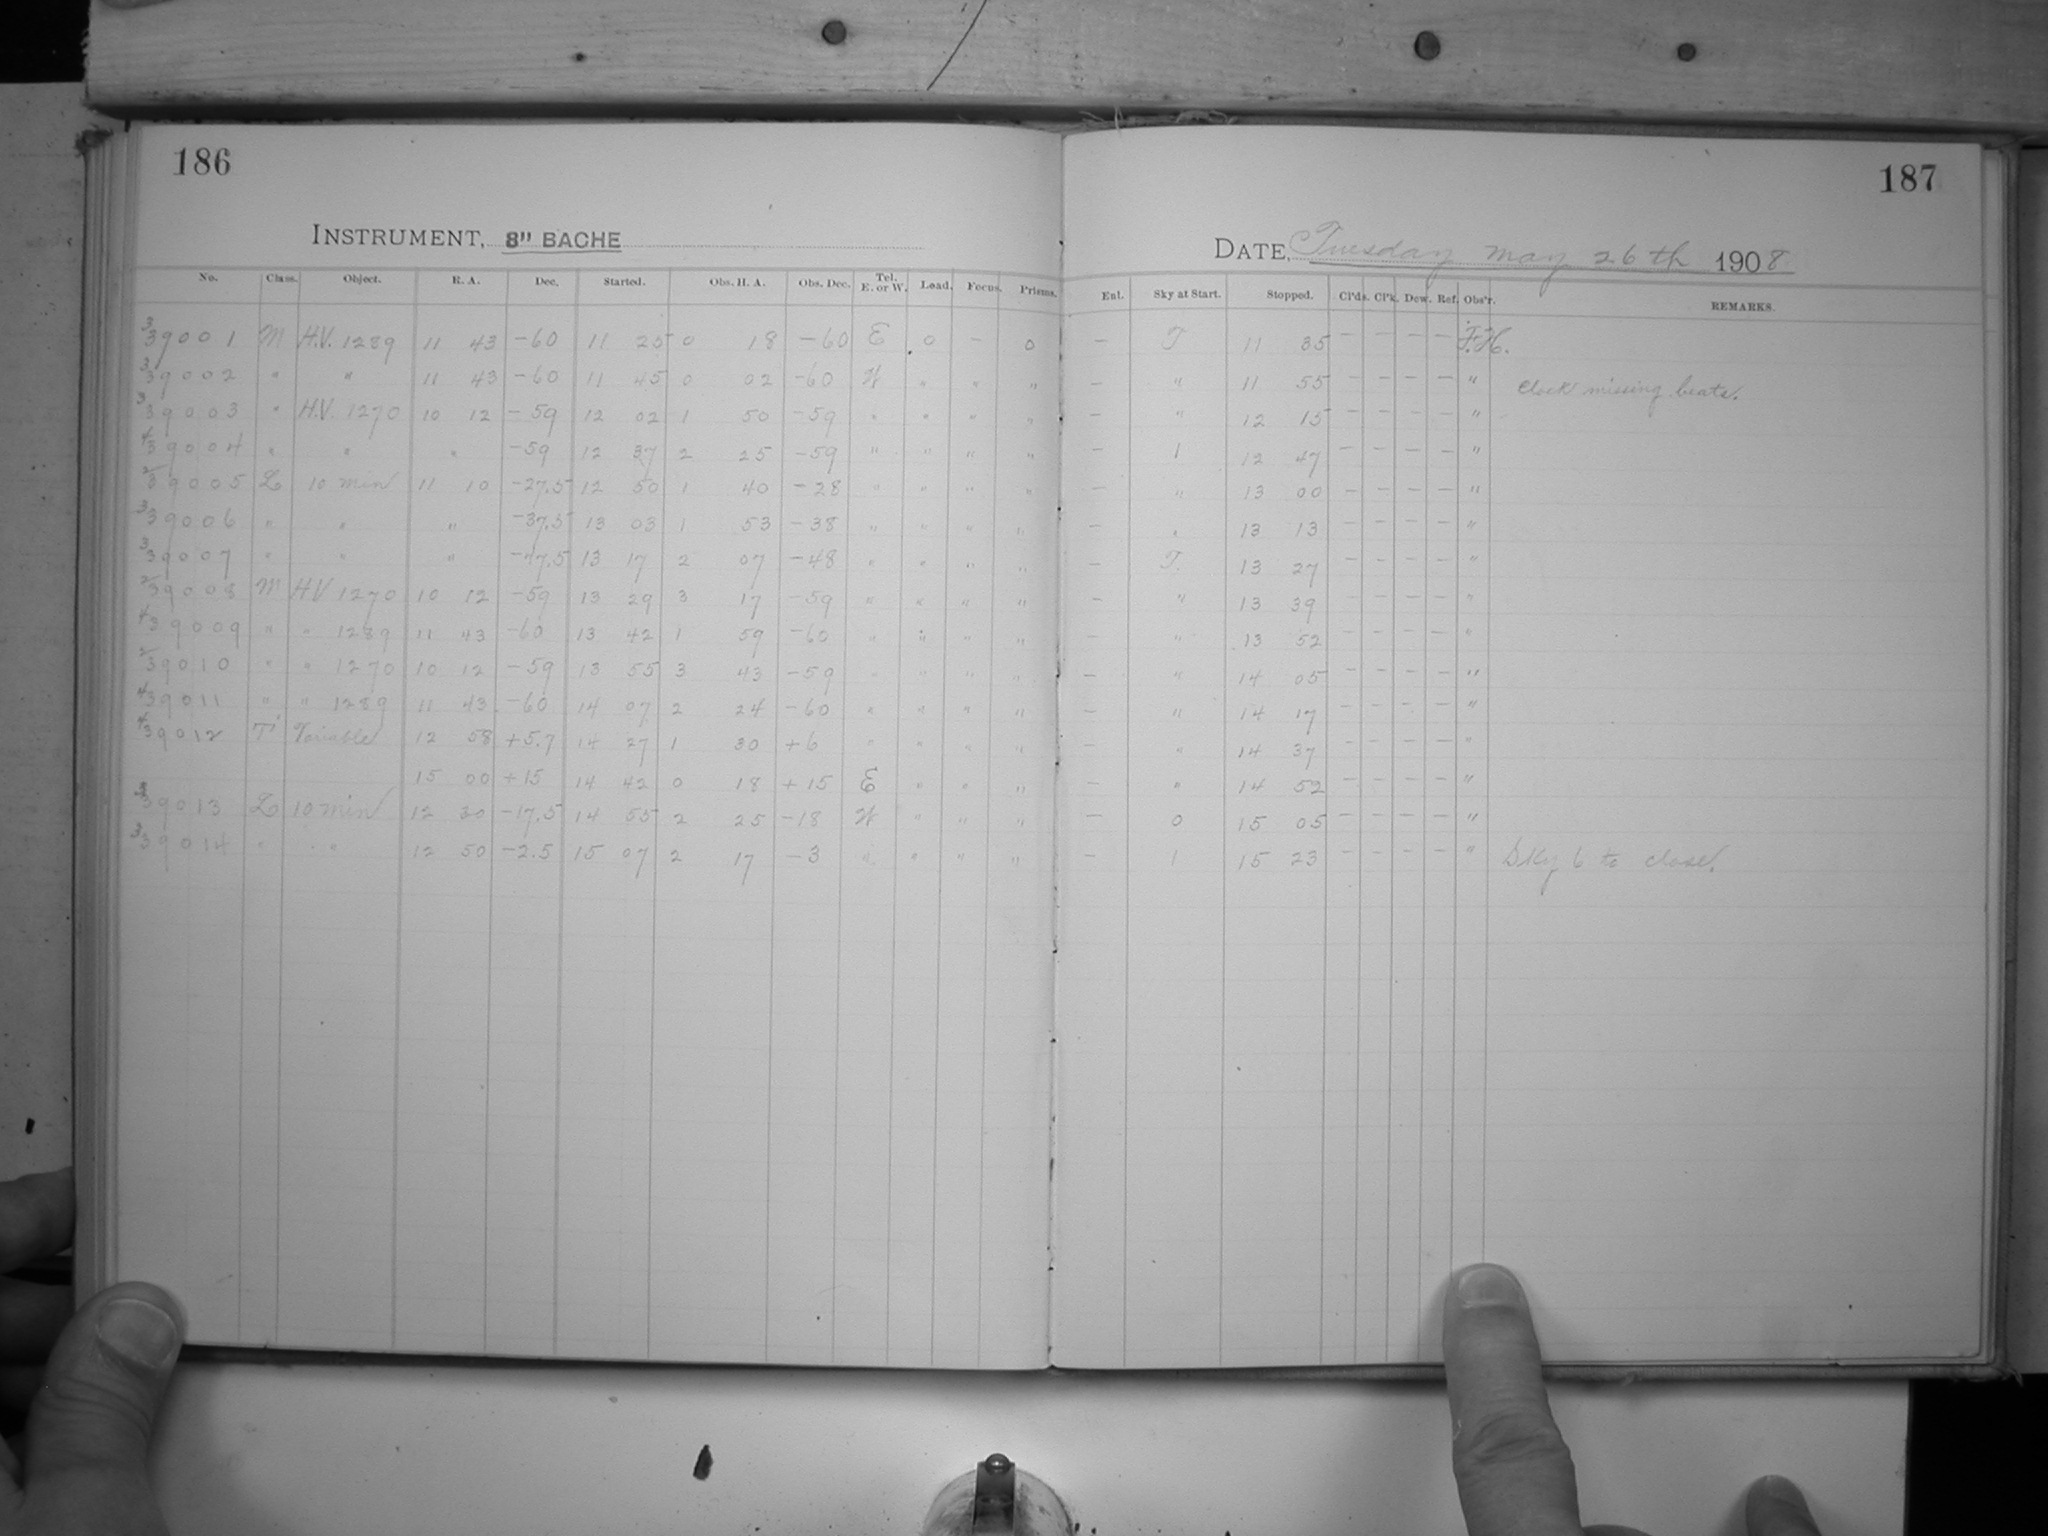 186
187
INSTRUMENT, 8" BACHE
DATE, Tuesday May 26th 1908
No. Class. Object. R. A. Dec. Started. Obs. H. A. Obs. Dec. Tel. E. or W. Load. Focus. Prisms. Enl. Sky at Start. Stopped. Cl'ds. Cl'k. Dew. Ref. Obs'r. REMARKS.
3 39001 M H.V. 1289 11 43 -60 11 25 0 18 -60 E 0 - 0 - T 11 35 - - - - F.H.
3 39002 " " 11 43 -60 11 45 0 02 -60 W " " " - " 11 55 - - - - " Clock missing beats.
3 39003 " H.V. 1270 10 12 -59 12 02 1 50 -59 " " " " - " 12 15 - - - - "
4 39004 " " " -59 12 37 2 25 -59 " " " " - 1 12 47 - - - - "
2 39005 L 10 min 11 10 -27.5 12 50 1 40 -28 " " " " - " 13 00 - - - - "
3 39006 " " " -37.5 13 03 1 53 -38 " " " " - " 13 13 - - - - "
3 39007 " " " -47.5 13 17 2 07 -48 " " " " - T. 13 27 - - - - "
2 39008 M HV 1270 10 12 -59 13 29 3 17 -59 " " " " - " 13 39 - - - - "
4 39009 " " 1289 11 43 -60 13 42 1 59 -60 " " " " - " 13 52 - - - - "
2 39010 " " 1270 10 12 -59 13 55 3 43 -59 " " " " - " 14 05 - - - - "
4 39011 " " 1289 11 43 -60 14 07 2 24 -60 " " " " - " 14 17 - - - - "
4 39012 T' Variable 12 58 +5.7 14 27 1 30 +6 " " " " - " 14 37 - - - - "
15 00 +15 14 42 0 18 +15 E " " " - " 14 52 - - - - "
39013 L 10 min 12 30 -17.5 14 55 2 25 -18 W " " " - 0 15 05 - - - - "
3 39014 " " " 12 50 -2.5 15 07 2 17 -3 " " " " - 1 15 23 - - - - " Sky 6 to close.